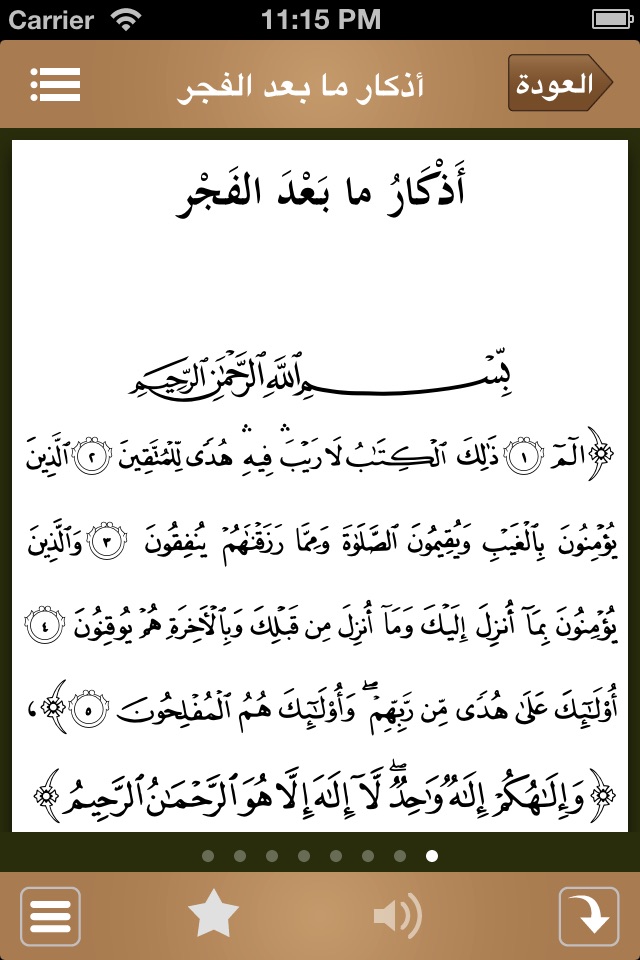 Carrier 11:15 PM
العودة
أذكار ما بعد الفجر
أَذْكَارُ ما بَعْدَ الفَجْر
بِسْمِ اللَّهِ الرَّحْمَٰنِ الرَّحِيمِ
﴿الٓمٓ ١ ذَٰلِكَ ٱلْكِتَٰبُ لَا رَيْبَ ۛ فِيهِ ۛ هُدًى لِّلْمُتَّقِينَ ٢ ٱلَّذِينَ
يُؤْمِنُونَ بِٱلْغَيْبِ وَيُقِيمُونَ ٱلصَّلَوٰةَ وَمِمَّا رَزَقْنَٰهُمْ يُنفِقُونَ ٣ وَٱلَّذِينَ
يُؤْمِنُونَ بِمَآ أُنزِلَ إِلَيْكَ وَمَآ أُنزِلَ مِن قَبْلِكَ وَبِٱلْءَاخِرَةِ هُمْ يُوقِنُونَ ٤
أُو۟لَٰٓئِكَ عَلَىٰ هُدًى مِّن رَّبِّهِمْ ۖ وَأُو۟لَٰٓئِكَ هُمُ ٱلْمُفْلِحُونَ ٥﴾ ،
﴿وَإِلَٰهُكُمْ إِلَٰهٌ وَٰحِدٌ ۖ لَّآ إِلَٰهَ إِلَّا هُوَ ٱلرَّحْمَٰنُ ٱلرَّحِيمُ﴾